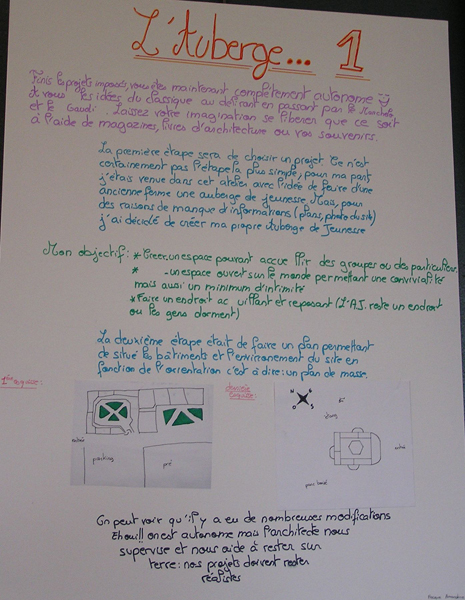 L'Auberge... 1
Finis les projets imposés, vous êtes maintenant complètement autonome
A vous les idées du classique au délirant en passant par le
et le Gaudi. Laissez votre imagination se libérer que ce soit
à l'aide de magazines, livres d'architecture ou vos souvenirs.
La première étape sera de choisir un projet Ce n'est
certainement pas l'étape la plus simple, pour ma part
j'étais venue dans cet atelier avec l'idée de faire d'une
ancienne ferme une auberge de jeunesse Mais, pour
des raisons de manque d'informations (plans, photo du site)
j'ai décidé de créer ma propre Auberge de Jeunesse
Mon objectif: * Créer un espace pouvant accueillir des groupes ou des particuliers.
* - un espace ouvert sur le monde permettant une convivialité
mais aussi un minimum d'intimité
* Faire un endroit ac uillant et reposant (L'A.J. reste un endroit
où les gens dorment)
La deuxième étape était de faire un plan permettant
de situé les bâtiments et l'environement du site en
fonction de l'orientation c'est à dire: un plan de masse.
1ère esquisse:
entrée
parking
pré
dernière
esquisse:
N
E
O
S
entrée
On peut voir qu'il y a eu de nombreuses modifications
Eh oui!! on est autonome mais l'architecte nous
supervise et nous aide à rester sur
terre: nos projets doivent rester
réalistes